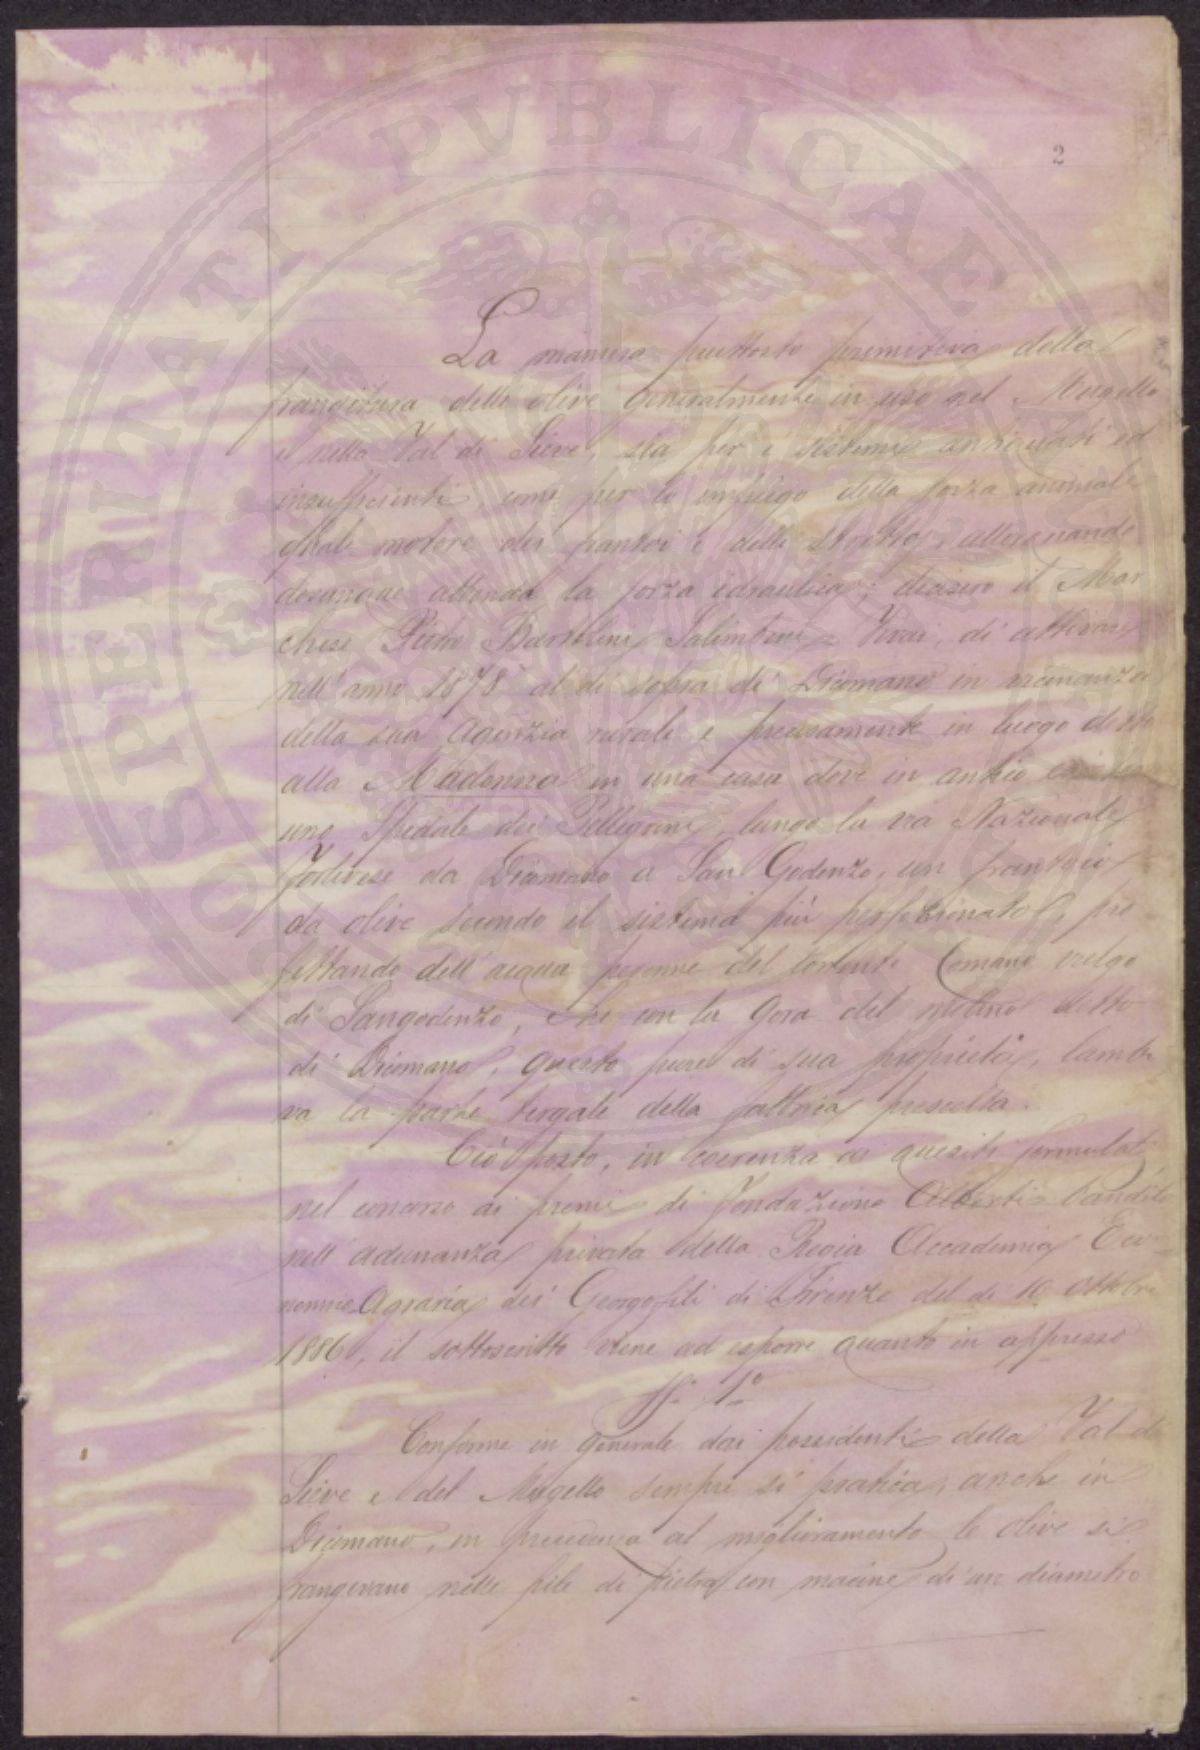 2
La maniera piuttosto primitiva della
frangitura delle olive generalmente in uso nel Mugello
e nella Val di Sieve, sia per i sistemi antiquati ed
insufficienti, come per lo impiego della forza animale
quale motore dei frantoi e delle strettoie, allorquando
dovunque abbonda la forza idraulica; decisero il Mar
chese Pietro Bartolini Salimbeni Vivai, di attivare
nell'anno 1878 al di sopra di Dicomano in vicinanza
della sua Agenzia rurale e precisamente in luogo detto
alla Madonna in una casa dove in antico
uno Spedale dei Pellegrini, lungo la via Nazionale
Forlivese da Dicomano a San Godenzo, un frantoio
da olive secondo il sistema più perfezionato, pro
fittando dell'acqua perenne del torrente Comano vulgo
di Sangodenzo, che con la gora del molino detto
di Dicomano, questo pure di sua proprietà, lambi
va la parte tergale della fattoria prescelta.
Ciò posto, in coerenza ai quesiti formulati
nel concorso ai premi di fondazione Alberti bandito
nell'adunanza privata della Regia Accademia Eco
nomico Agraria dei Georgofili di Firenze del dì 10 Ottobre
1886, il sottoscritto viene ad esporre quanto in appresso
§. 1°
Conforme in generale dai possidenti della Val di
Sieve e del Mugello sempre si pratica, anche in
Dicomano, in precedenza al miglioramento le olive si
frangevano nelle pile di pietra con macine di un diametro
SPERITATI PVBLICAE